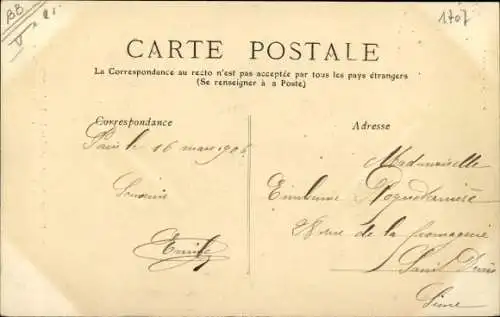 BB
1707
CARTE POSTALE
La Correspondance au recto n'est pas acceptée par tous les pays étrangers
(Se renseigner à a Poste)
Correspondance
Adresse
Paris le 16 mars 1906
Souvenir
Emile
Mademoiselle
28 rue de la fromagerie
Saint Denis
Seine